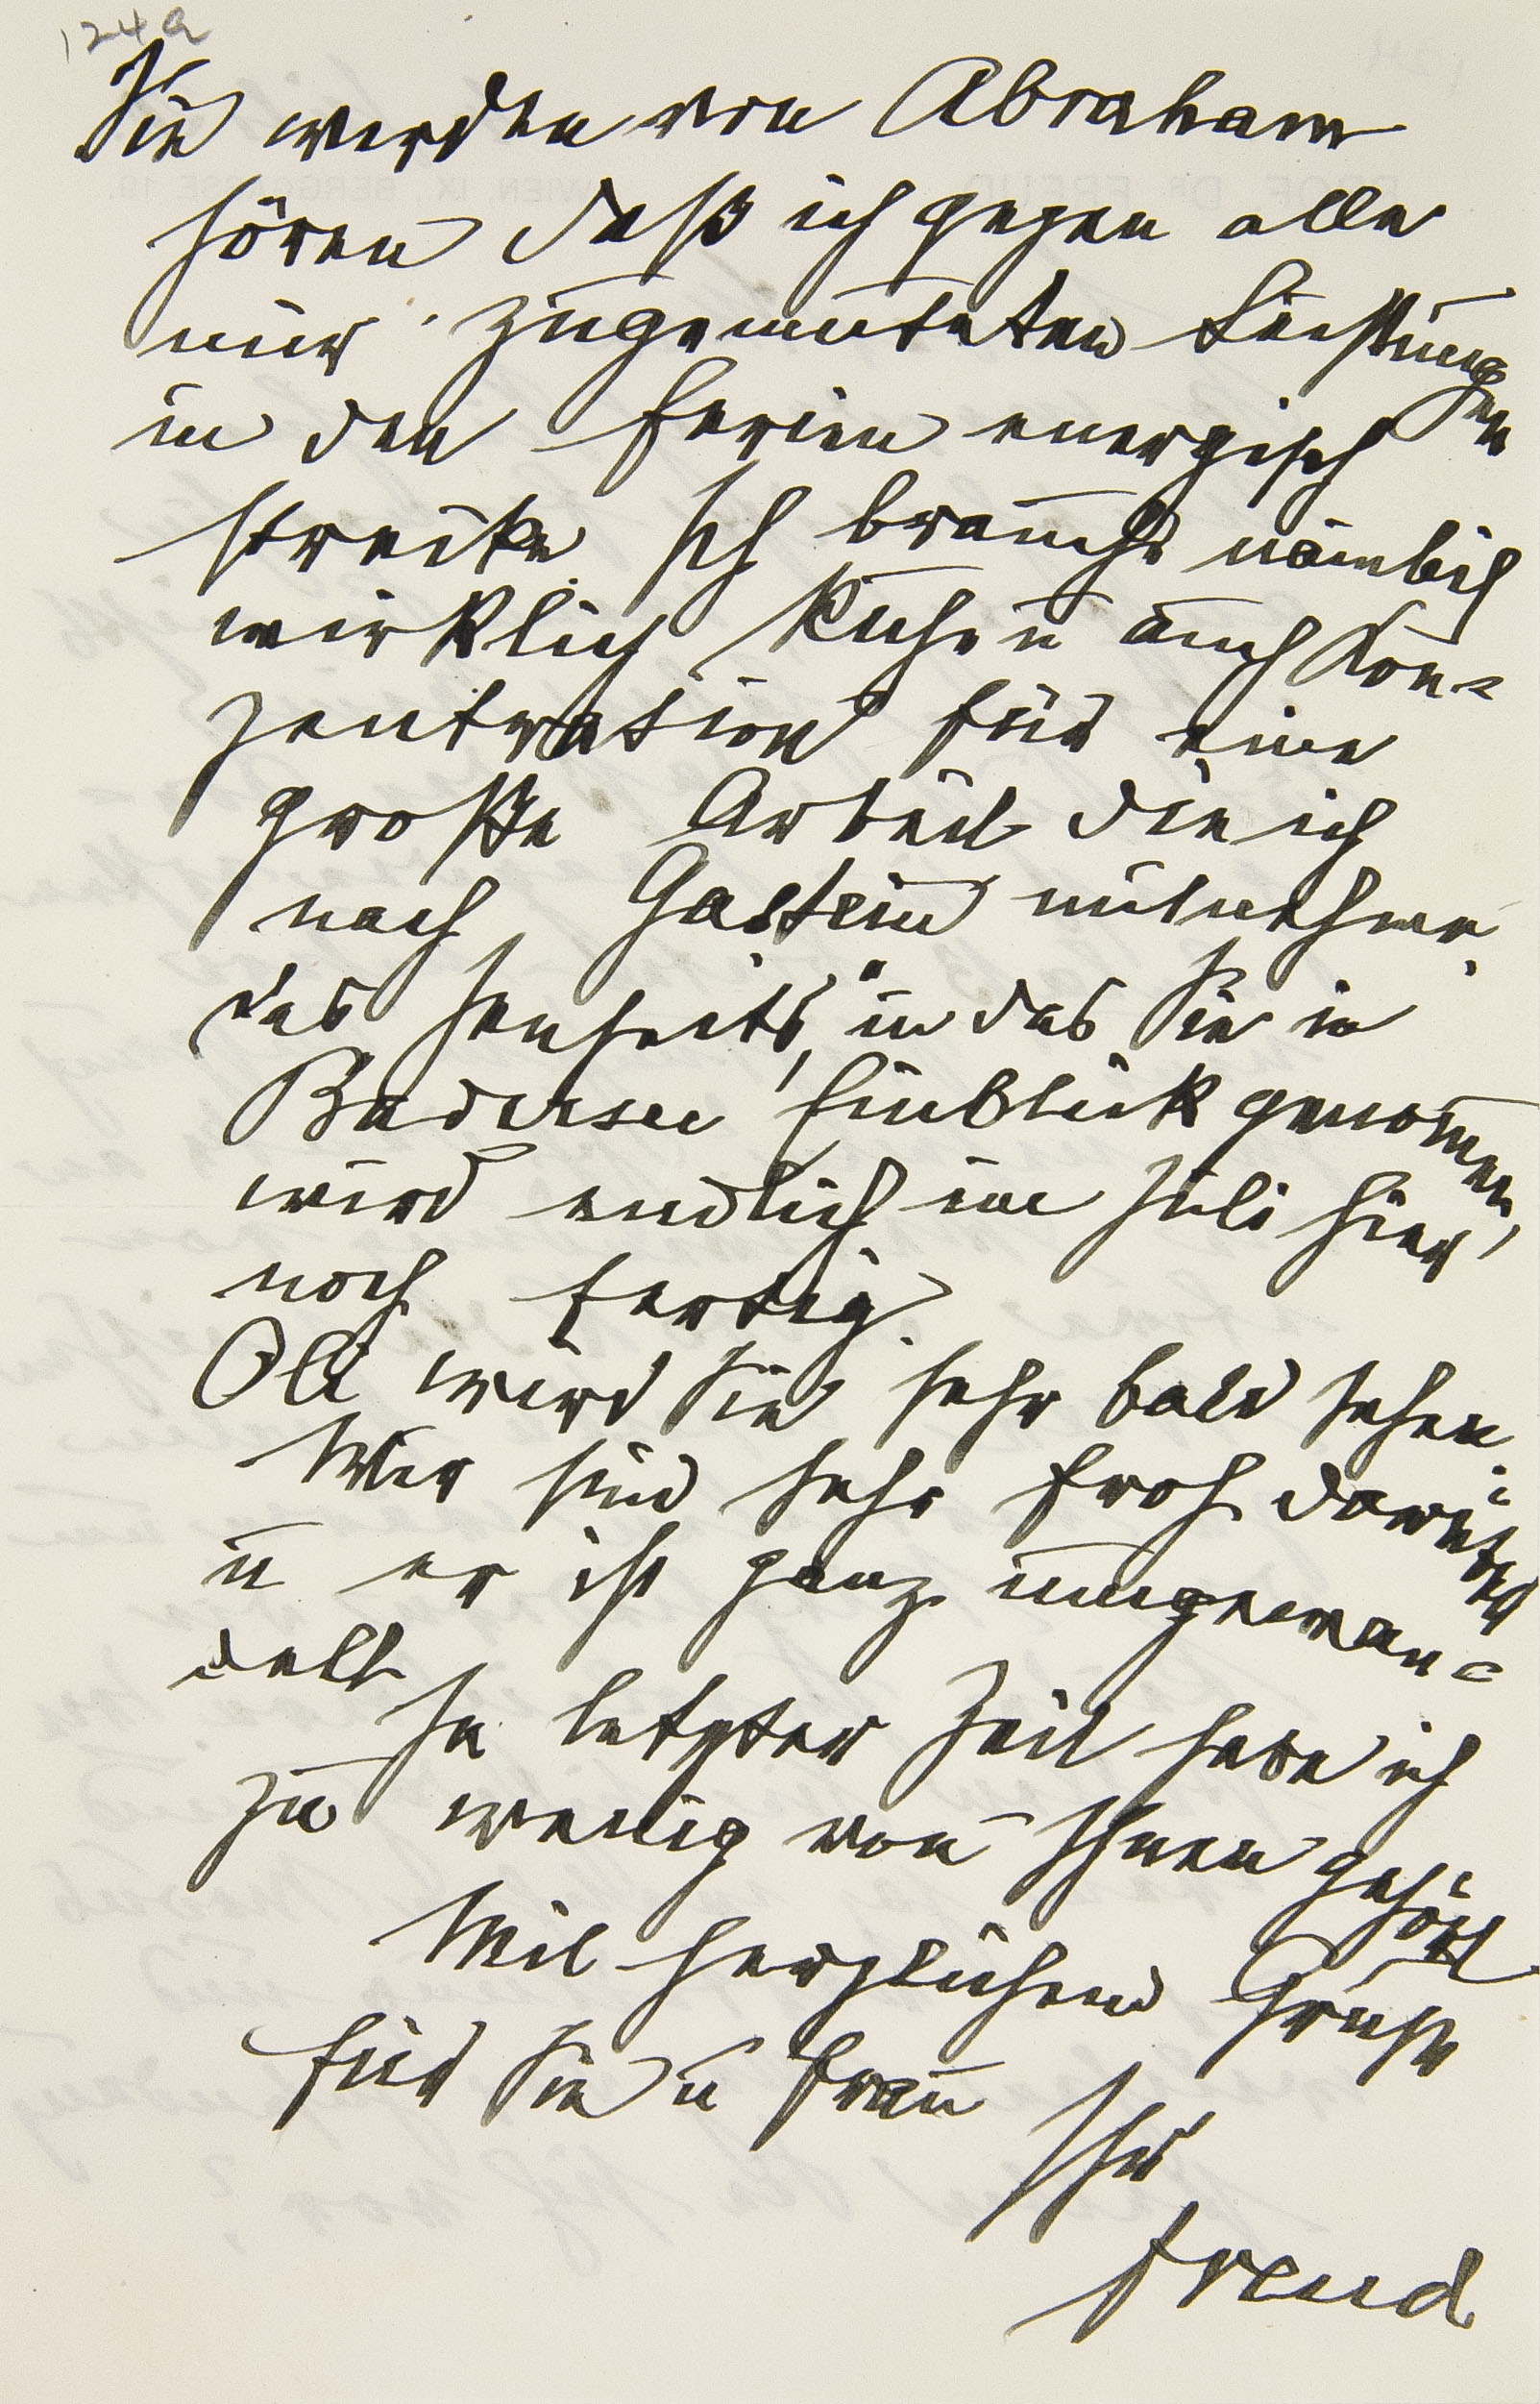 124a
Sie werden von Abraham
hören daß ich gegen alle
mir zugemuteten Leistungen
in den Ferien energisch
streike. Ich brauche nämlich
wirklich Ruhe u auch Kon-
zentration für eine
große Arbeit die ich
nach Gastein mitnehme.
das Jenseits, in das Sie in
Badersee Einblick genommen,
wird endlich im Juli hier
noch fertig.
Oli wird Sie sehr bald sehen.
Wir sind sehr froh darüber
u er ist ganz umgewan-
delt
In letzter Zeit habe ich
zu wenig von Ihnen gehört
Mit herzlichem Gruß
für Sie u Frau
Ihr
Freud